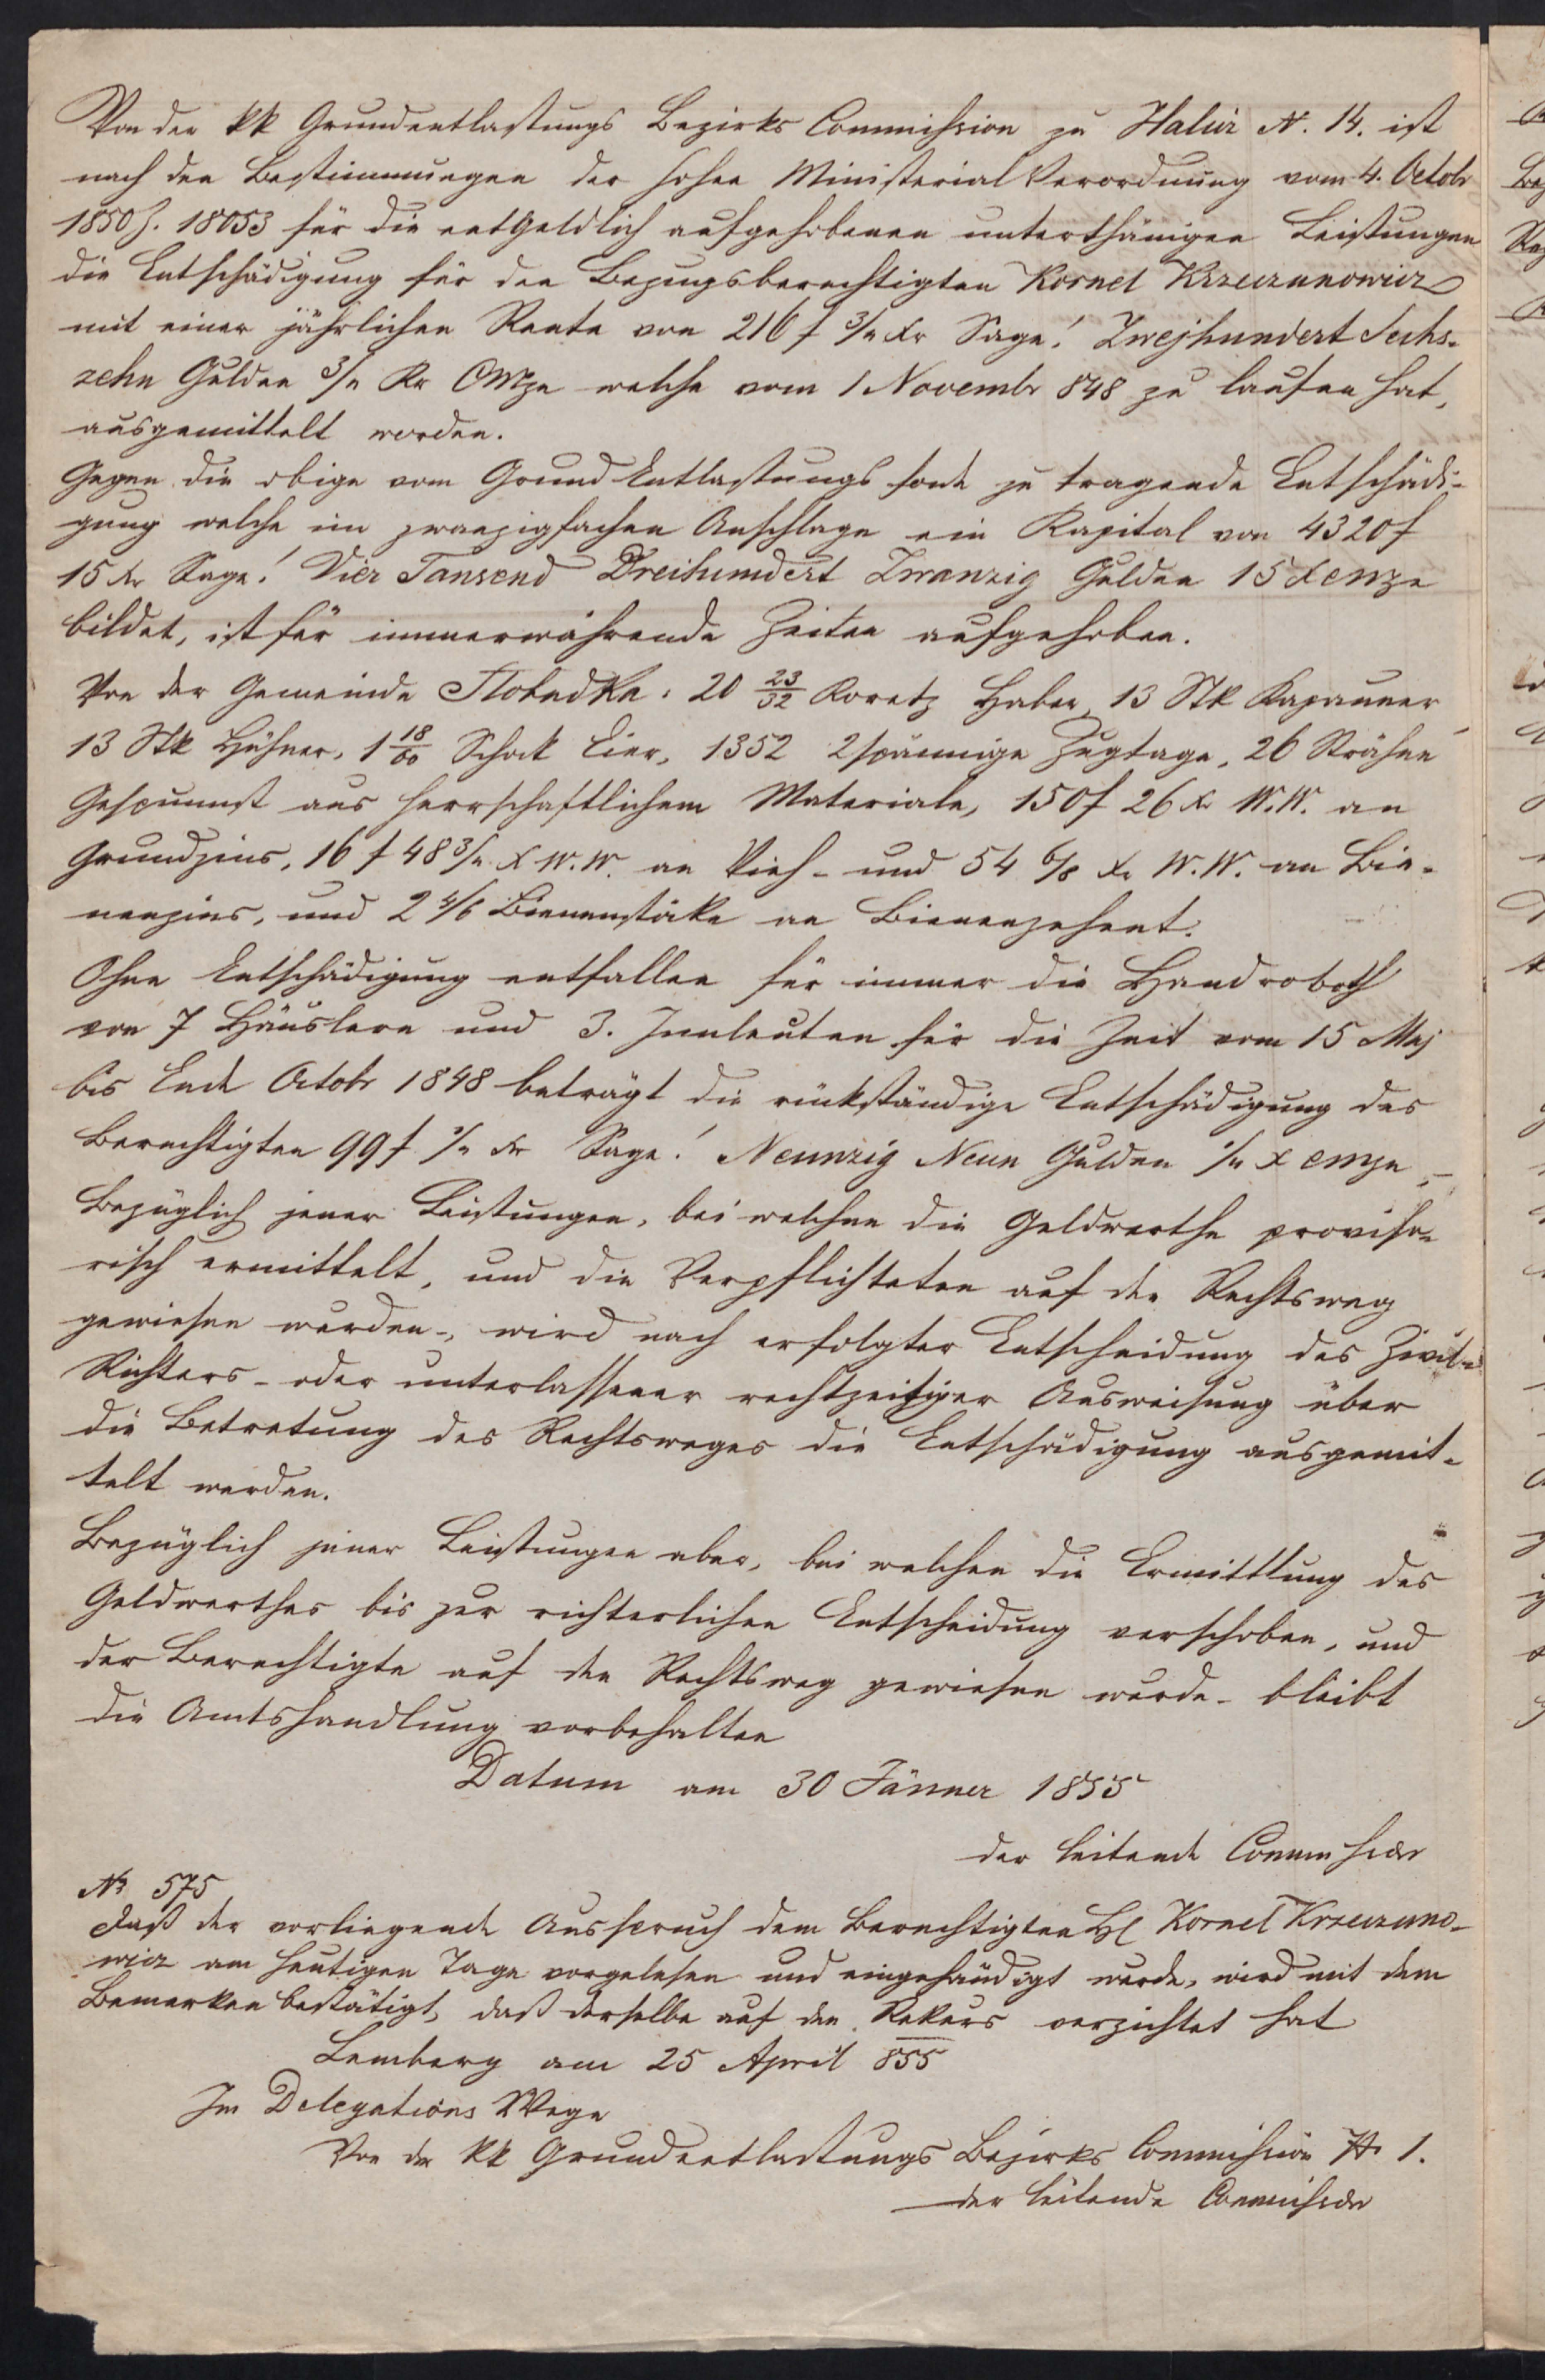 Von der kk Grundentlastungs Bezirks Commission zu Halicz N. 14. ist
nach den Bestimmungen der hohen Ministerial Verordnung vom 4. Octobr
1850 Z. 18053 für die entgeldlich aufgehobenen unterthänigen Leistungen
die Entschädigung für den Bezugsberechtigten Kornel Krzeczunowicz
mit einer jährlichen Rente von 216 f 3/4 Xr Sage! Zwejhundert Sechs-
zehn Gulden 3/4 Kr CMze welche vom 1 Novembr 848 zu laufen hat,
ausgemittelt worden.
Gegen die obige vom Grund Entlastungs fonde zu tragende Entschädi-
gung welche im zwanzigfachen Anschlage ein Kapital von 4320 f
15 Xr Sage! Vier Tausend Dreihundert Zwanzig Gulden 15 X CMze
bildet, ist für immerwährende Zeiten aufgehoben.
Von der Gemeinde Slobudka: 20 23/32 Koretz Haber, 13 Stk Kapauner
13 Stk Hühner, 1 18/60 Schock Eier, 1352 2spännige Zugtage, 26 Strähne
Gespunnst aus herrschaftlichem Materiale, 150 f 26 Xr W.W. an
Grundzins, 16 f 48 3/4 X W.W. an Vieh- und 54 6/8 Xr W.W. an Bie-
nenzins, und 2 4/6 Bienenstöcke an Bienenzehent.
Ohne Entschädigung entfallen für immer die Handroboth
von 7 Häuslern und 3. Innleuten für die Zeit vom 15 Maj
bis Ende Octobr 1848 beträgt die rückständige Entschädigung des
Berechtigten 99 f 1/4 Xr Sage! Neunzig Neun Gulden 1/4 X CMze,-
Bezüglich jener Leistungen, bei welchen die Geldwerthe proviso-
risch ermittelt, und die Verpflichteten auf den Rechtsweg
gewiesen wurden-, wird nach erfolgter Entscheidung des Zivil-
Richters- oder unterlassener rechtzeitiger Ausweisung über
die Betretung des Rechtsweges die Entschädigung ausgemit-
telt werden.
Bezüglich jener Leistungen aber, bei welchen die Ermittlung des
Geldwerthes bis zur richterlichen Entscheidung verschoben, und
der Berechtigte auf den Rechtsweg gewiesen wurde- bleibt
die Amtshandlung vorbehalten
Datum am 30 Jänner 1855
der leitende Commissär
N 575
Daß der vorliegende Ausspruch dem Berechtigten H Kornel Krzeczuno-
wicz am heutigen Tage vorgelesen und eingehändigt wurde, wird mit dem
Bemerken bestätigt, daß derselbe auf den Rekurs verzichtet hat
Lemberg am 25 April 855
Im Delegations Wege
Von der kk Grundentlastungs Bezirks Commission N 1.
der leitende Commissär